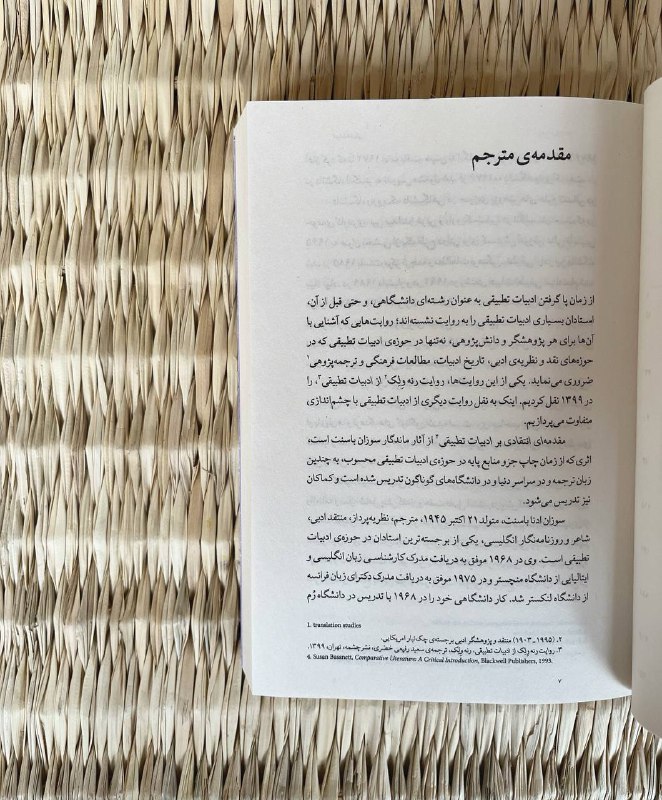 مقدمه‌ی مترجم
از زمان پا گرفتن ادبیات تطبیقی به عنوان رشته‌ای دانشگاهی، و حتی قبل از آن،
استادان بسیاری ادبیات تطبیقی را به روایت نشسته‌اند؛ روایت‌هایی که آشنایی با
آن‌ها برای هر پژوهشگر و دانش‌پژوهی، نه‌تنها در حوزه‌ی ادبیات تطبیقی که در
حوزه‌های نقد و نظریه‌ی ادبی، تاریخ ادبیات، مطالعات فرهنگی و ترجمه‌پژوهی۱
ضروری می‌نماید. یکی از این روایت‌ها، روایت رنه ولک۲ از ادبیات تطبیقی۳، را
در ۱۳۹۹ نقل کردیم. اینک به نقل روایت دیگری از ادبیات تطبیقی با چشم‌اندازی
متفاوت می‌پردازیم.
مقدمه‌ای انتقادی بر ادبیات تطبیقی۴ از آثار ماندگار سوزان باسنت است،
اثری که از زمان چاپ جزو منابع پایه در حوزه‌ی ادبیات تطبیقی محسوب، به چندین
زبان ترجمه و در سراسر دنیا و در دانشگاه‌های گوناگون تدریس شده است و کماکان
نیز تدریس می‌شود.
سوزان ادنا باسنت، متولد ۲۱ اکتبر ۱۹۴۵، مترجم، نظریه‌پرداز، منتقد ادبی،
شاعر و روزنامه‌نگار انگلیسی، یکی از برجسته‌ترین استادان در حوزه‌ی ادبیات
تطبیقی است. وی در ۱۹۶۸ موفق به دریافت مدرک کارشناسی زبان انگلیسی و
ایتالیایی از دانشگاه منچستر و در ۱۹۷۵ موفق به دریافت مدرک دکترای زبان فرانسه
از دانشگاه لنکستر شد. کار دانشگاهی خود را در ۱۹۶۸ با تدریس در دانشگاه رُم
1. translation studies
۲. (۱۹۰۳-۱۹۹۵) منتقد و پژوهشگر ادبی برجسته‌ی چک‌تبار امریکایی.
۳. روایت رنه ولک از ادبیات تطبیقی، رنه ولک، ترجمه‌ی سعید رفیعی خضری، نشر چشمه، تهران، ۱۳۹۹.
4. Susan Bassnett, Comparative Literature: A Critical Introduction, Blackwell Publishers, 1993.
۷